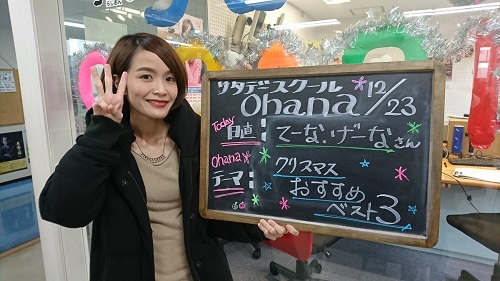 サタデースクール
Ohana* 12/23
Today 日直: てーないげーなさん
Ohana* テーマ: クリスマス
おすすめ
ベスト3